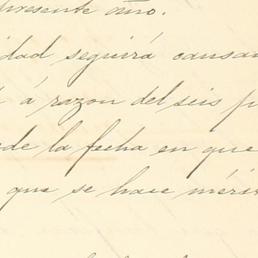 presente año.
idad seguirá causan
á razon del seis p
de la fecha en que
que se hace méri